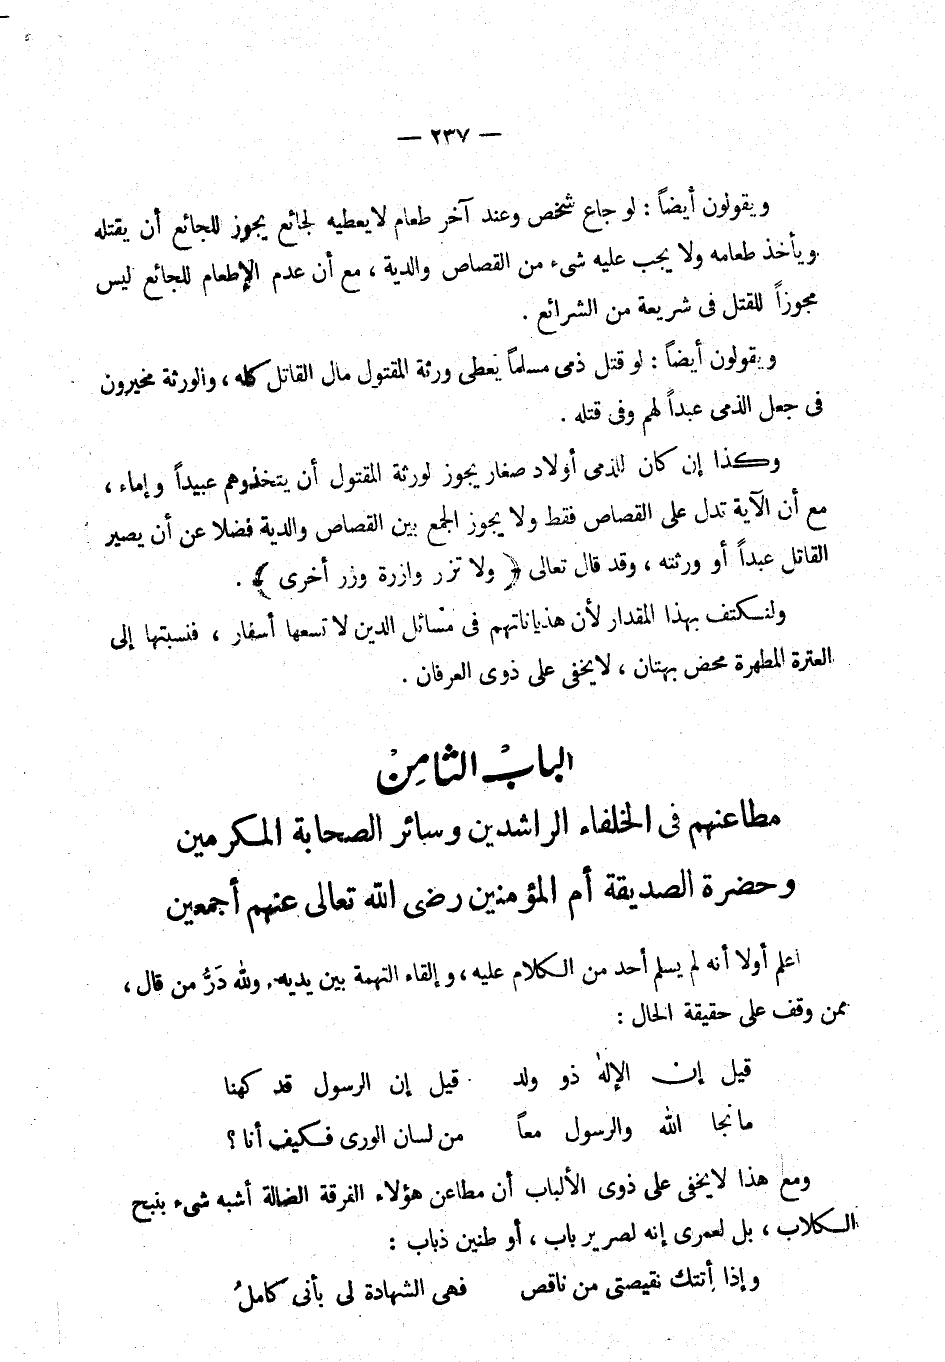 — ٢٣٧ —
ويقولون أيضاً : لو جاع شخص وعند آخر طعام لايعطيه لجائع يجوز للجائع أن يقتله
ويأخذ طعامه ولا يجب عليه شىء من القصاص والدية ، مع أن عدم الإطعام للجائع ليس
مجوزاً للقتل فى شريعة من الشرائع .
ويقولون أيضاً : لو قتل ذمى مسلماً يعطى ورثة المقتول مال القاتل كله ، والورثة مخيرون
فى جعل الذمى عبداً لهم وفى قتله .
وكذا إن كان للذمى أولاد صغار يجوز لورثة المقتول أن يتخذوهم عبيداً وإماء ،
مع أن الآية تدل على القصاص فقط ولا يجوز الجمع بين القصاص والدية فضلا عن أن يصير
القاتل عبداً أو ورثته ، وقد قال تعالى ﴿ ولا تزر وازرة وزر أخرى ﴾ .
ولنكتف بهذا المقدار لأن هذياناتهم فى مسائل الدين لا تسعها أسفار ، فنسبتها إلى
العترة المطهرة محض بهتان ، لايخفى على ذوى العرفان .
الباب الثامن
مطاعنهم فى الخلفاء الراشدين وسائر الصحابة المكرمين
وحضرة الصديقة أم المؤمنين رضى الله تعالى عنهم أجمعين
اعلم أولا أنه لم يسلم أحد من الكلام عليه ، وإلقاء التهمة بين يديه ، ولله دَرُّ من قال ،
ممن وقف على حقيقة الحال :
قيل إن الإلهٰ ذو ولد قيل إن الرسول قد كهنا
مانجا الله والرسول معاً من لسان الورى فكيف أنا ؟
ومع هذا لايخفى على ذوى الألباب أن مطاعن هؤلاء الفرقة الضالة أشبه شىء بنبح
الكلاب ، بل لعمرى إنه لصرير باب ، أو طنين ذباب :
وإذا أتتك نقيصتى من ناقص فهى الشهادة لى بأنى كاملُ